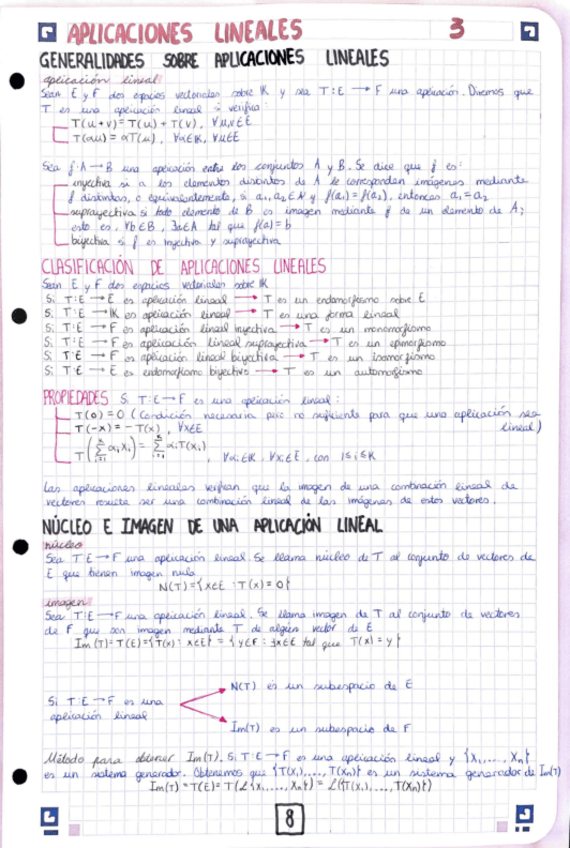 APLICACIONES LINEALES 3
GENERALIDADES SOBRE APLICACIONES LINEALES
aplicación lineal
Sean E y F dos espacios vectoriales sobre K y sea T:E → F una aplicación. Diremos que
T es una aplicación lineal si verifica:
T(u+v)=T(u)+T(v), ∀u,v∈E
T(αu)=αT(u), ∀α∈K, ∀u∈E
Sea f:A→B una aplicación entre los conjuntos A y B. Se dice que f es:
inyectiva si a los elementos distintos de A le corresponden imágenes mediante
f distintas, o equivalentemente, si a₁,a₂∈A y f(a₁)=f(a₂), entonces a₁=a₂
suprayectiva si todo elemento de B es imagen mediante f de un elemento de A;
esto es, ∀b∈B, ∃a∈A tal que f(a)=b
biyectiva si f es inyectiva y suprayectiva
CLASIFICACIÓN DE APLICACIONES LINEALES
Sean E y F dos espacios vectoriales sobre K
Si T:E → E es aplicación lineal → T es un endomorfismo sobre E
Si T:E → K es aplicación lineal → T es una forma lineal
Si T:E → F es aplicación lineal inyectiva → T es un monomorfismo
Si T:E → F es aplicación lineal suprayectiva → T es un epimorfismo
Si T:E → F es aplicación lineal biyectiva → T es un isomorfismo
Si T:E → E es endomorfismo biyectivo → T es un automorfismo
PROPIEDADES Si T:E→F es una aplicación lineal:
T(0)=0 (Condición necesaria pero no suficiente para que una aplicación sea
lineal)
T(-x)=-T(x), ∀x∈E
T(∑αᵢxᵢ)=∑αᵢT(xᵢ), ∀αᵢ∈K, ∀xᵢ∈E, con 1≤i≤K
Las aplicaciones lineales verifican que la imagen de una combinación lineal de
vectores resulta ser una combinación lineal de las imágenes de estos vectores.
NÚCLEO E IMAGEN DE UNA APLICACIÓN LINEAL
núcleo
Sea T:E→F una aplicación lineal. Se llama núcleo de T al conjunto de vectores de
E que tienen imagen nula
N(T)={x∈E : T(x)=0}
imagen
Sea T:E→F una aplicación lineal. Se llama imagen de T al conjunto de vectores
de F que son imagen mediante T de algún vector de E
Im(T)=T(E)={T(x): x∈E} = {y∈F : ∃x∈E tal que T(x)=y}
N(T) es un subespacio de E
Si T:E→F es una
aplicación lineal
Im(T) es un subespacio de F
Método para obtener Im(T). Si T:E→F es una aplicación lineal y {x₁,...,xₙ}
es un sistema generador. Obtenemos que {T(x₁),...,T(xₙ)} es un sistema generador de Im(T)
Im(T)=T(E)=T(ℒ{x₁,...,xₙ})=ℒ({T(x₁),...,T(xₙ)})
8